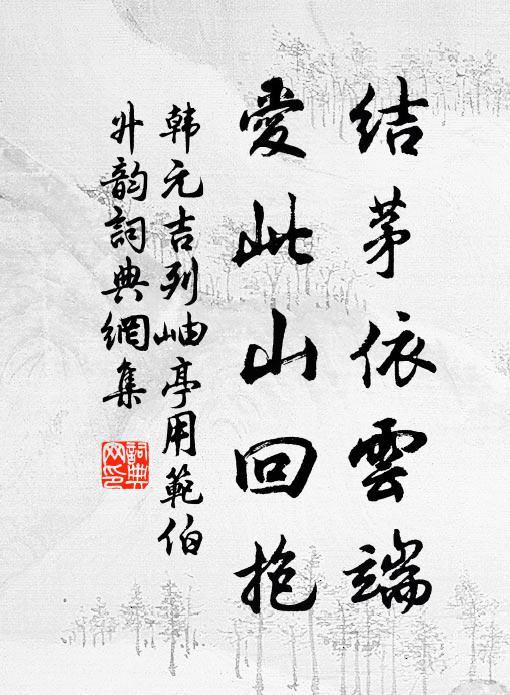 結茅依雲端
愛此山回抱
韩元吉列岫亭用範伯
升韵詞典網集
詞典网印